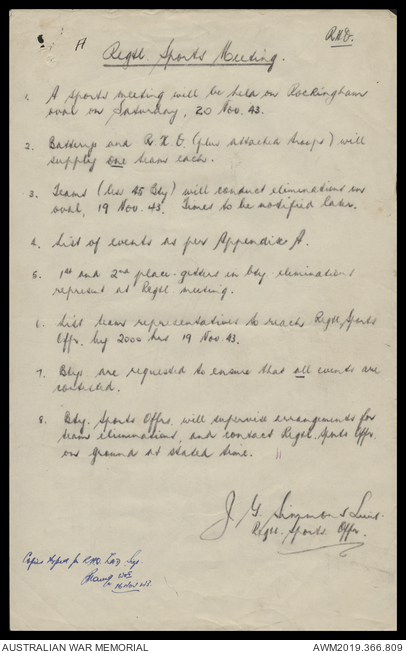 A
R.H.Q.
Regtl. Sports Meeting.
1. A sports meeting will be held on Rockingham
oval on Saturday, 20 Nov. 43.
2. Batterys and R.H.Q. (plus attached troops) will
supply one team each.
3. Teams (less 45 Bty) will conduct eliminations on
oval, 19 Nov. 43. Times to be notified later.
4. List of events as per Appendix A.
5. 1st and 2nd place-getters in bty eliminations
represent at Regtl meeting.
6. List team representatives to reach Regtl Sports
Offr. by 2000 hrs 19 Nov. 43.
7. Btys are requested to ensure that all events are
contested.
8. Bty. Sports Offrs. will supervise arrangements for
team eliminations, and contact Regtl. Sports Offr.
on ground at stated time.
J. G. Lieut.
Regtl. Sports Offr.
Copies typed for R.H.Q. Btys.
16 Nov 43.
AUSTRALIAN WAR MEMORIAL
AWM2019.366.809